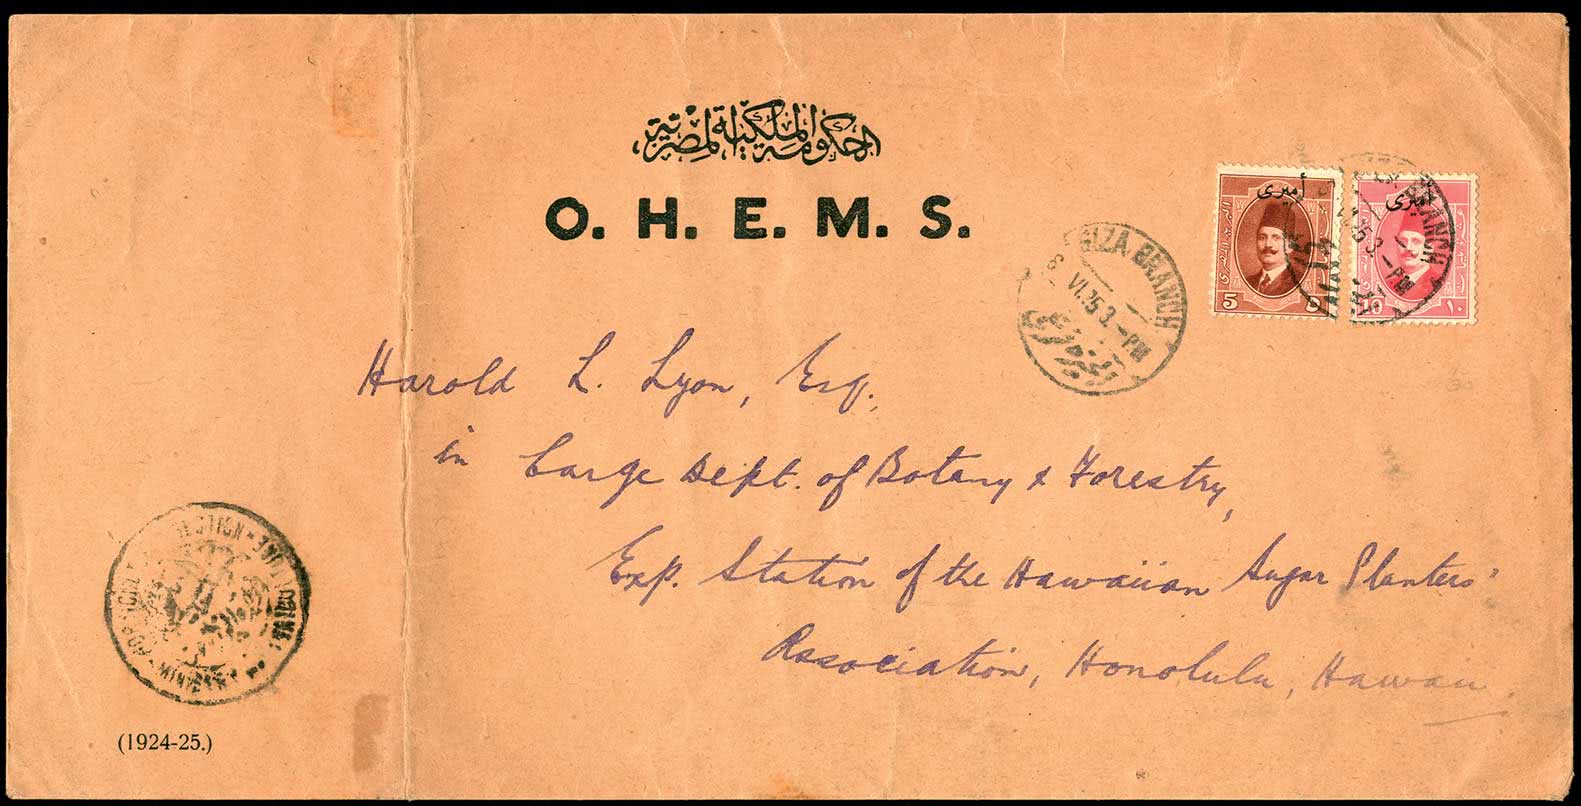 الحكومة الملكية المصرية
O. H. E. M. S.
GIZA BRANCH
8 VI.25 3 - PM
أميرى
5 5
أميرى
10 ١٠
BRANCH
25 3 - PM
Harold L. Lyon, Esq.,
in Carge Dept. of Botany & Forestry,
Exp. Station of the Hawaiian Sugar Planters'
Association, Honolulu, Hawaii.
SECTION
MINISTRY
(1924-25.)